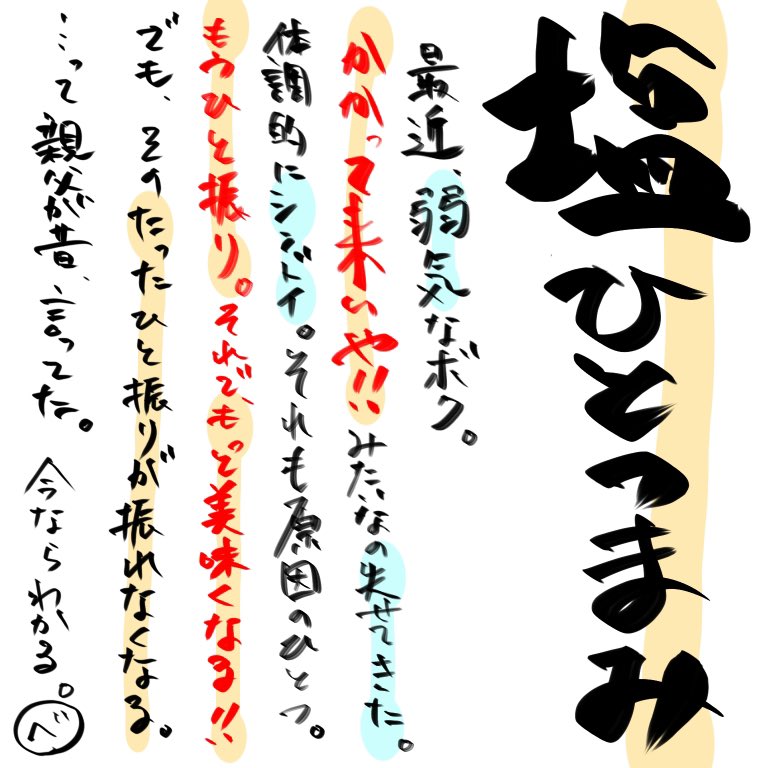 塩ひとつまみ
最近、弱気なボク。
かかって来いや!!みたいなの失せてきた。
体調的にシンドイ。それも原因のひとつ。
もうひと振り。それで、もっと美味くなる!!
でも、そのたったひと振りが振れなくなる。
…って親父が昔、言ってた。今ならわかる。
べ